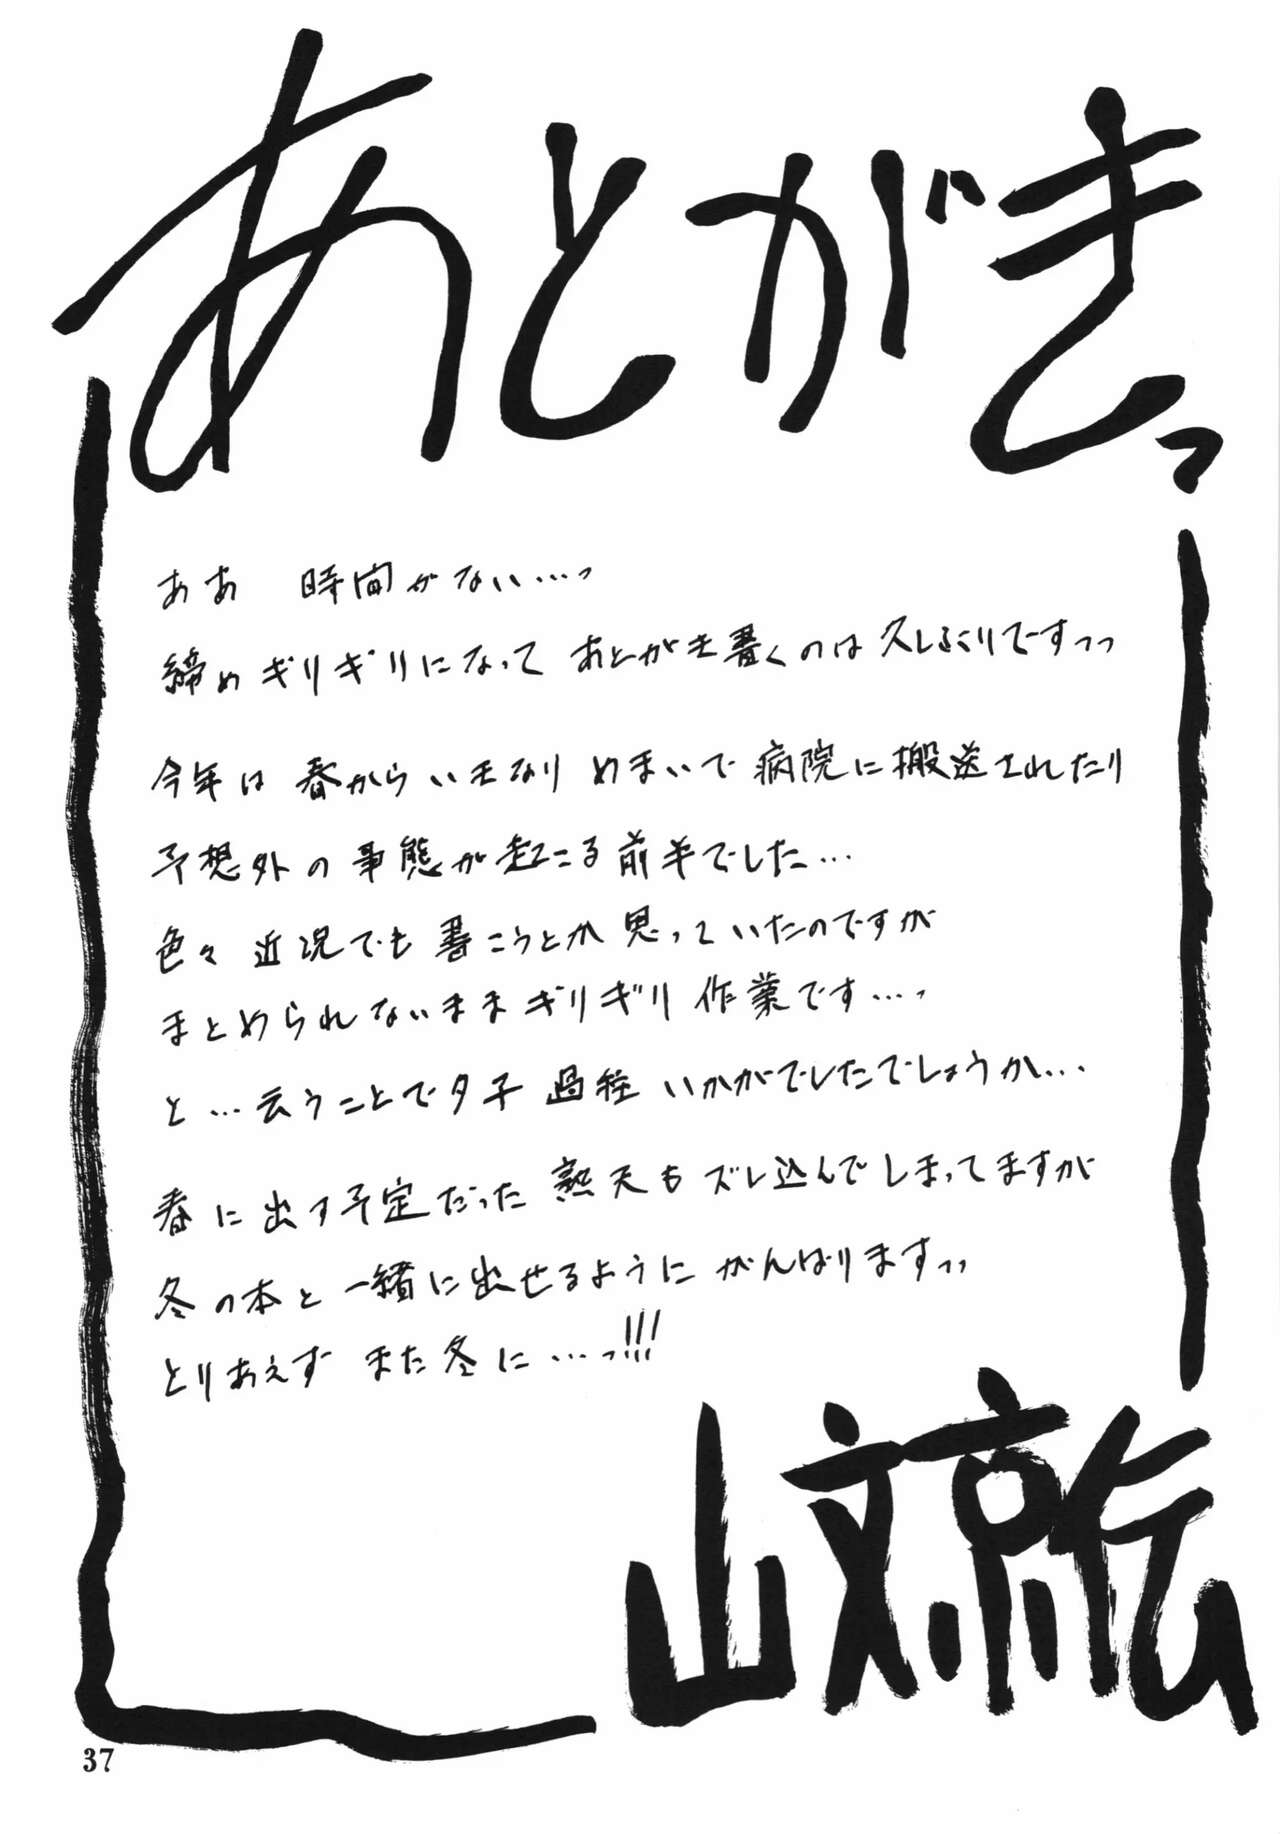 あとがきっ
ああ 時間がない…っ
締めギリギリになって あとがき書くのは久しぶりですっっ
今年は 春からいきなり めまいで 病院に搬送されたり
予想外の事態が起こる前半でした…
色々近況でも書こうとか思っていたのですが
まとめられないままギリギリ作業です…っ
と…云うことで夕子過程 いかがでしたでしょうか…
春に出す予定だった 熟天もズレ込んでしまってますが
冬の本と一緒に出せるようにがんばりますっっ
とりあえず また冬に…っ!!!
山文京伝
37